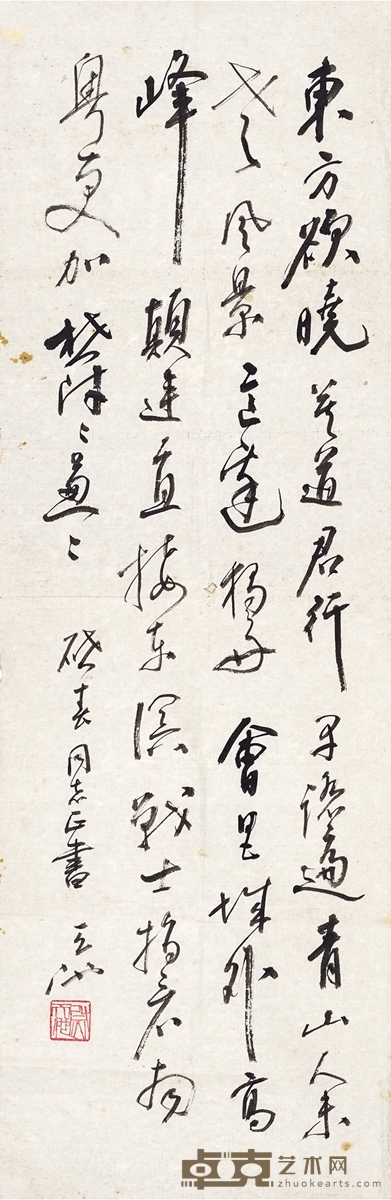 東方欲曉莫道君行早踏遍青山人未
老風景這邊獨好會昌城外高
峰顛連直接東溟戰士指看南
粵更加郁〻蔥〻
啟春同志正書 天池
卓克艺术网
zhuokearts.com